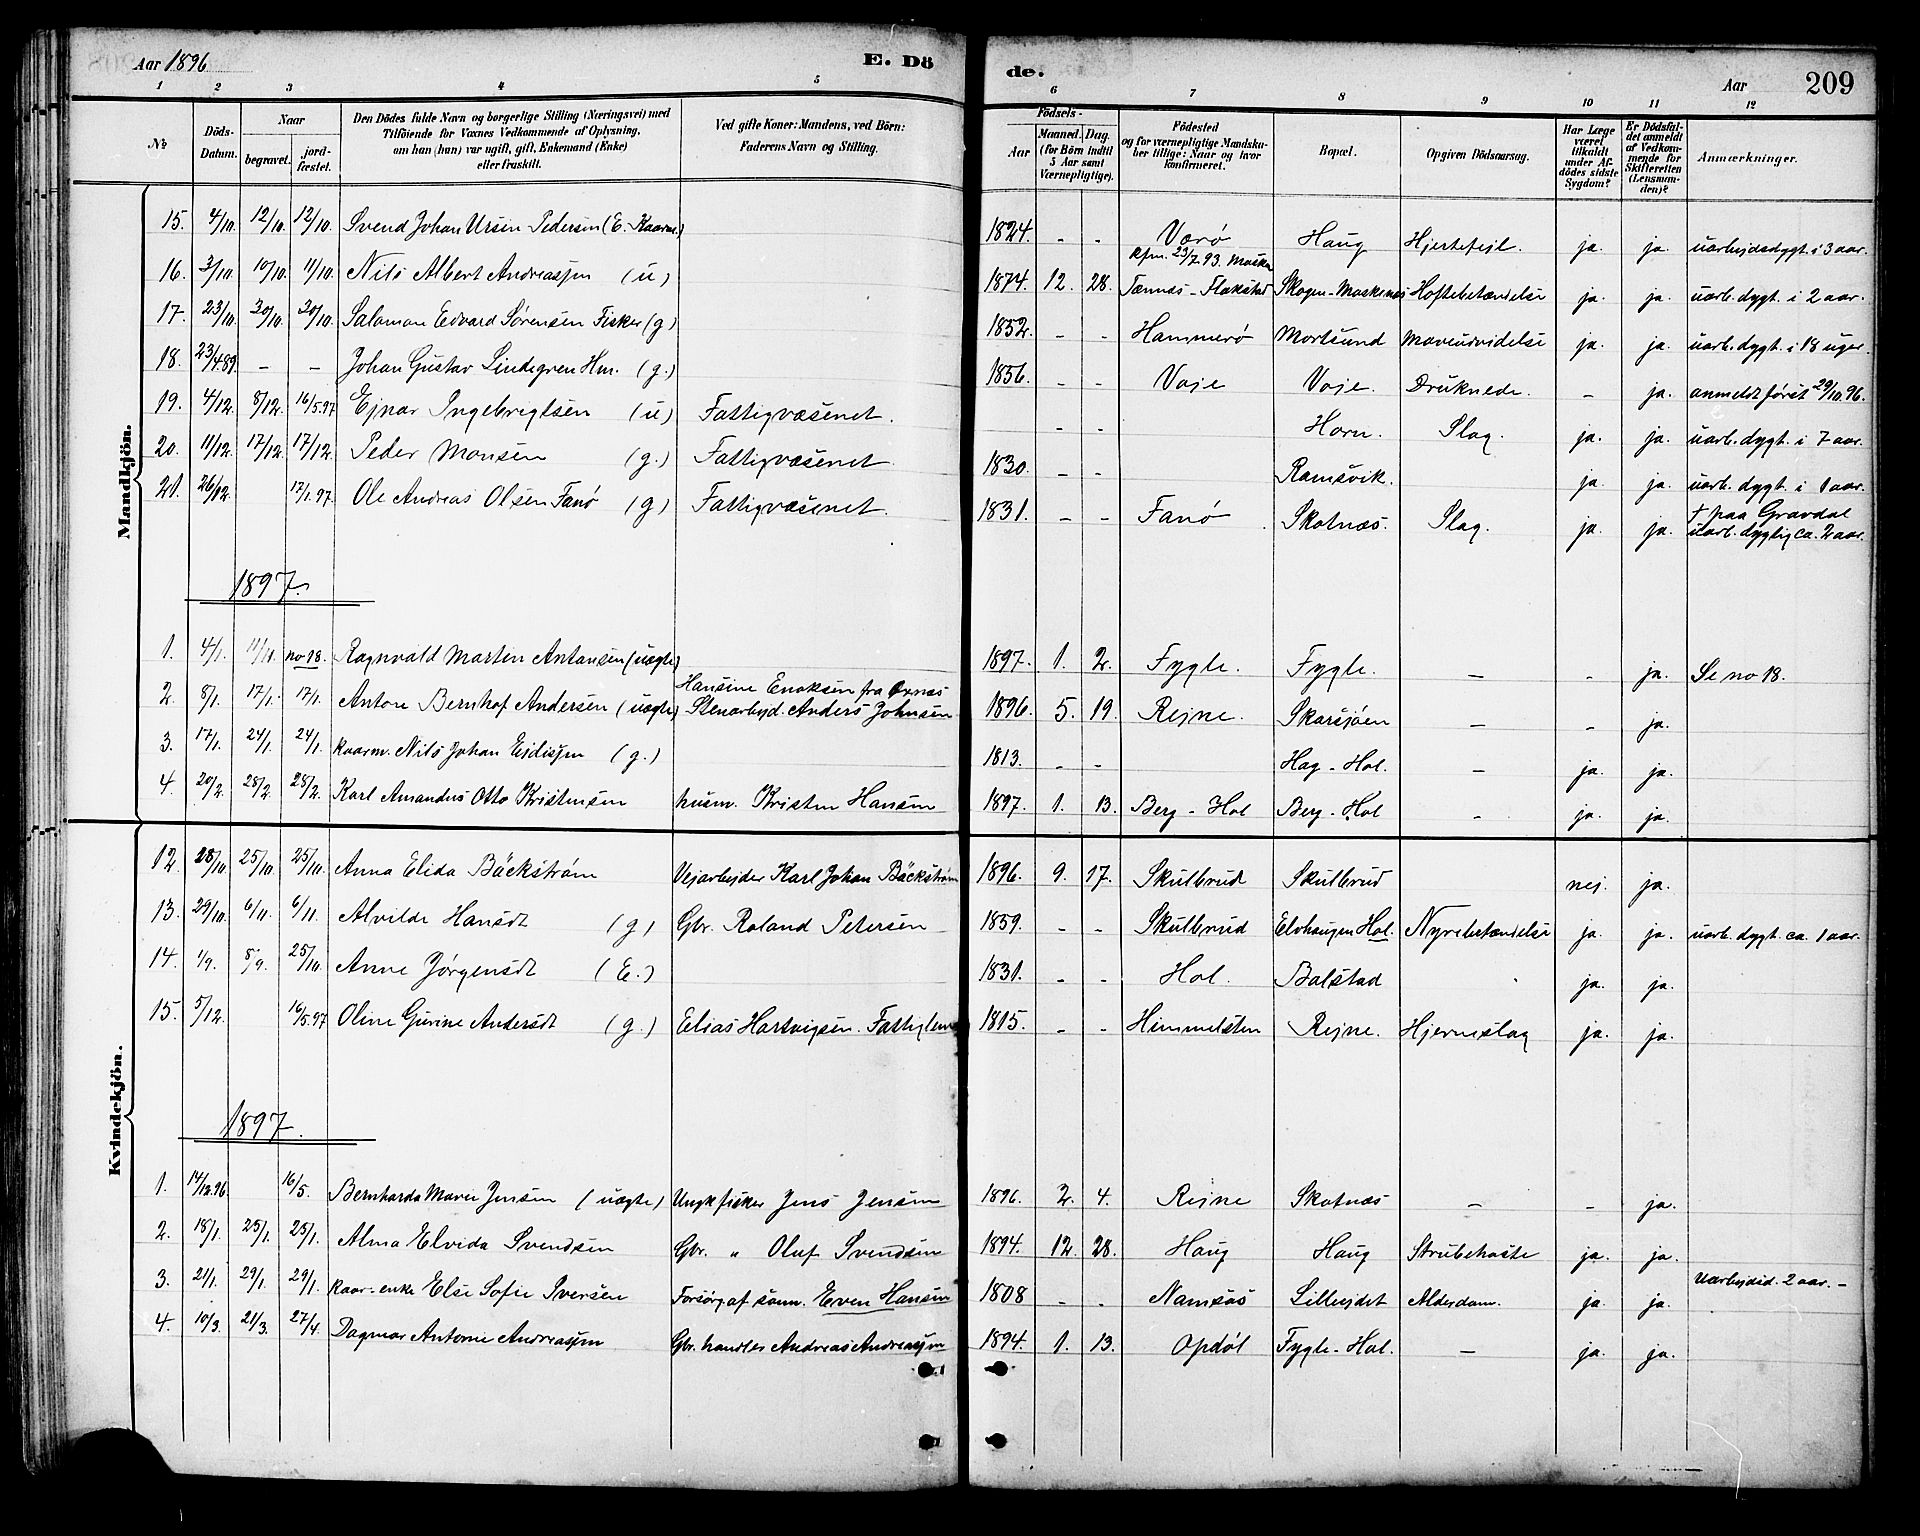 Aar 1896 E. Dö de. Aar 209
1 2 3 4 5 6 7 8 9 10 11 12
№ Döds-Datum. Naar begravet. jordfæstet. Den Dödes fulde Navn og borgerlige Stilling (Næringsvei) med Tilföiende for Voxnes Vedkommende af Oplysning, om han (hun) var ugift, gift, Enkemand (Enke) eller fraskilt. Ved gifte Koner: Mandens, ved Börn: Faderens Navn og Stilling. Födsels- Aar Maaned. Dag. (for Börn indtil 5 Aar samt Værnepligtige). Födested og for værnepligtige Mandskaber tillige: Naar og hvor konfirmeret. Bopæl. Opgiven Dödsaarsag. Har Læge været tilkaldt under Afdödes sidste Sygdom? Er Dödsfaldet anmeldt af Vedkommende for Skifteretten (Lensmanden)? Anmærkninger.
Mandkjön.
15. 4/10. 12/10. 12/10. Svend Johan Ursin Pedersen (E. Kaarm.) 1824. - - Værø Haug Hjertefejl. ja. ja. uarbejdsdygt. i 3 aar.
16. 3/10. 10/10. 11/10. Nils Albert Andreassen (u) 1874. 12. 28. kfm. 23/7 93. Tænnes-Flakstad Skogen-Moskenæs Hoftebetændelse ja. ja. uarb. dygt. i 2 aar.
17. 23/10. 30/10. 30/10. Salomon Edvard Sørensen Fisker (g) 1852. - - Hammerø Mortsund Maveudvidelse ja. ja. uarb. dygt. i 18 uger.
18. 23/4.89. - - Johan Gustav Lindegren Hm. (g.) 1856. - - Voje Voje. Druknede. - ja. anmeldt først 29/10.96.
19. 4/12. 8/12. 16/5.97 Ejnar Ingebrigtsen (u) Fattigvæsenet. - - Horn. Slag. ja. ja. uarb. dygt. i 7 aar.
20. 11/12. 17/12. 17/12. Peder Monsen (g.) Fattigvæsenet. 1830. - - Ramsvik. ja. ja. uarb. dygt. i 1 aar.
21. 26/12. 17/1.97. Ole Andreas Olsen Fanø (g) Fattigvæsenet. 1831. - - Fanø Skotnæs. Slag. ja. ja. † paa Gravdal uarb. dygtig ca. 2 aar.
1897.
1. 4/1. no 18. Ragnvald Martin Antonsen (uægte) 1897. 1. 2. Fygle. Fygle. - ja. Se no 18.
2. 8/1. 17/1. 17/1. Anton Bernhof Andersen (uægte) Hansine Enoksen fra Øxnes Stenarbejd. Anders Johnsen 1896. 5. 19. Rejne. Skarsjøen - - ja.
3. 17/1. 24/1. 24/1. Kaarm. Nils Johan Eidissen (g.) 1813. - - Hag-Hol. - ja. ja.
4. 20/2. 28/2. 28/2. Karl Amandus Otto Kristensen husm. Kristen Hansen 1897. 1. 13. Berg-Hol Berg-Hol - ja. ja.
Kvindekjön.
12. 28/10. 25/10. 25/10. Anna Elida Bäckstrøm Vejarbejder Karl Johan Bäckstrøm 1896. 9. 17. Skulbrud Skulbrud nej. ja.
13. 29/10. 6/11. 6/11. Alvilde Hansdt (g) Gbr. Roland Petersen 1859. - - Skulbrud Elvhaugen Hol Nyrebetændelse ja. ja. uarb. dygt. ca. 1 aar.
14. 1/9. 8/9. 25/10. Anne Jørgensdt (E.) 1831. - - Hol. Balstad ja. ja.
15. 5/12. 16/5.97 Oline Gurine Andersdt (g.) Elias Hartvigsen. Fattiglem 1815. - - Himmelsten Rejne. Hjerneslag ja. ja.
1897.
1. 14/12.96. 16/5. Bernharda Marie Jensen (uægte) Ungk fisker Jens Jensen 1896. 2. 4. Rejne Skotnæs - - ja.
2. 18/1. 25/1. 25/1. Alma Elvida Svendsen Gbr. " Oluf Svendsen 1894. 12. 28. Haug Haug Strubehoste ja. ja.
3. 21/1. 29/1. 29/1. Kaar-enke Else Sofie Iversen Forsørg. af sønn. Even Hansen 1808 - - Namsos Lillejdet Alderdom. ja. ja. Uarbejdsd. 2 aar. -
4. 10/3. 21/3. 27/4. Dagmar Antonie Andreassen Gbr. handler Andreas Andreassen 1894. 1. 13. Opdøl Fygle-Hol. - ja. ja.